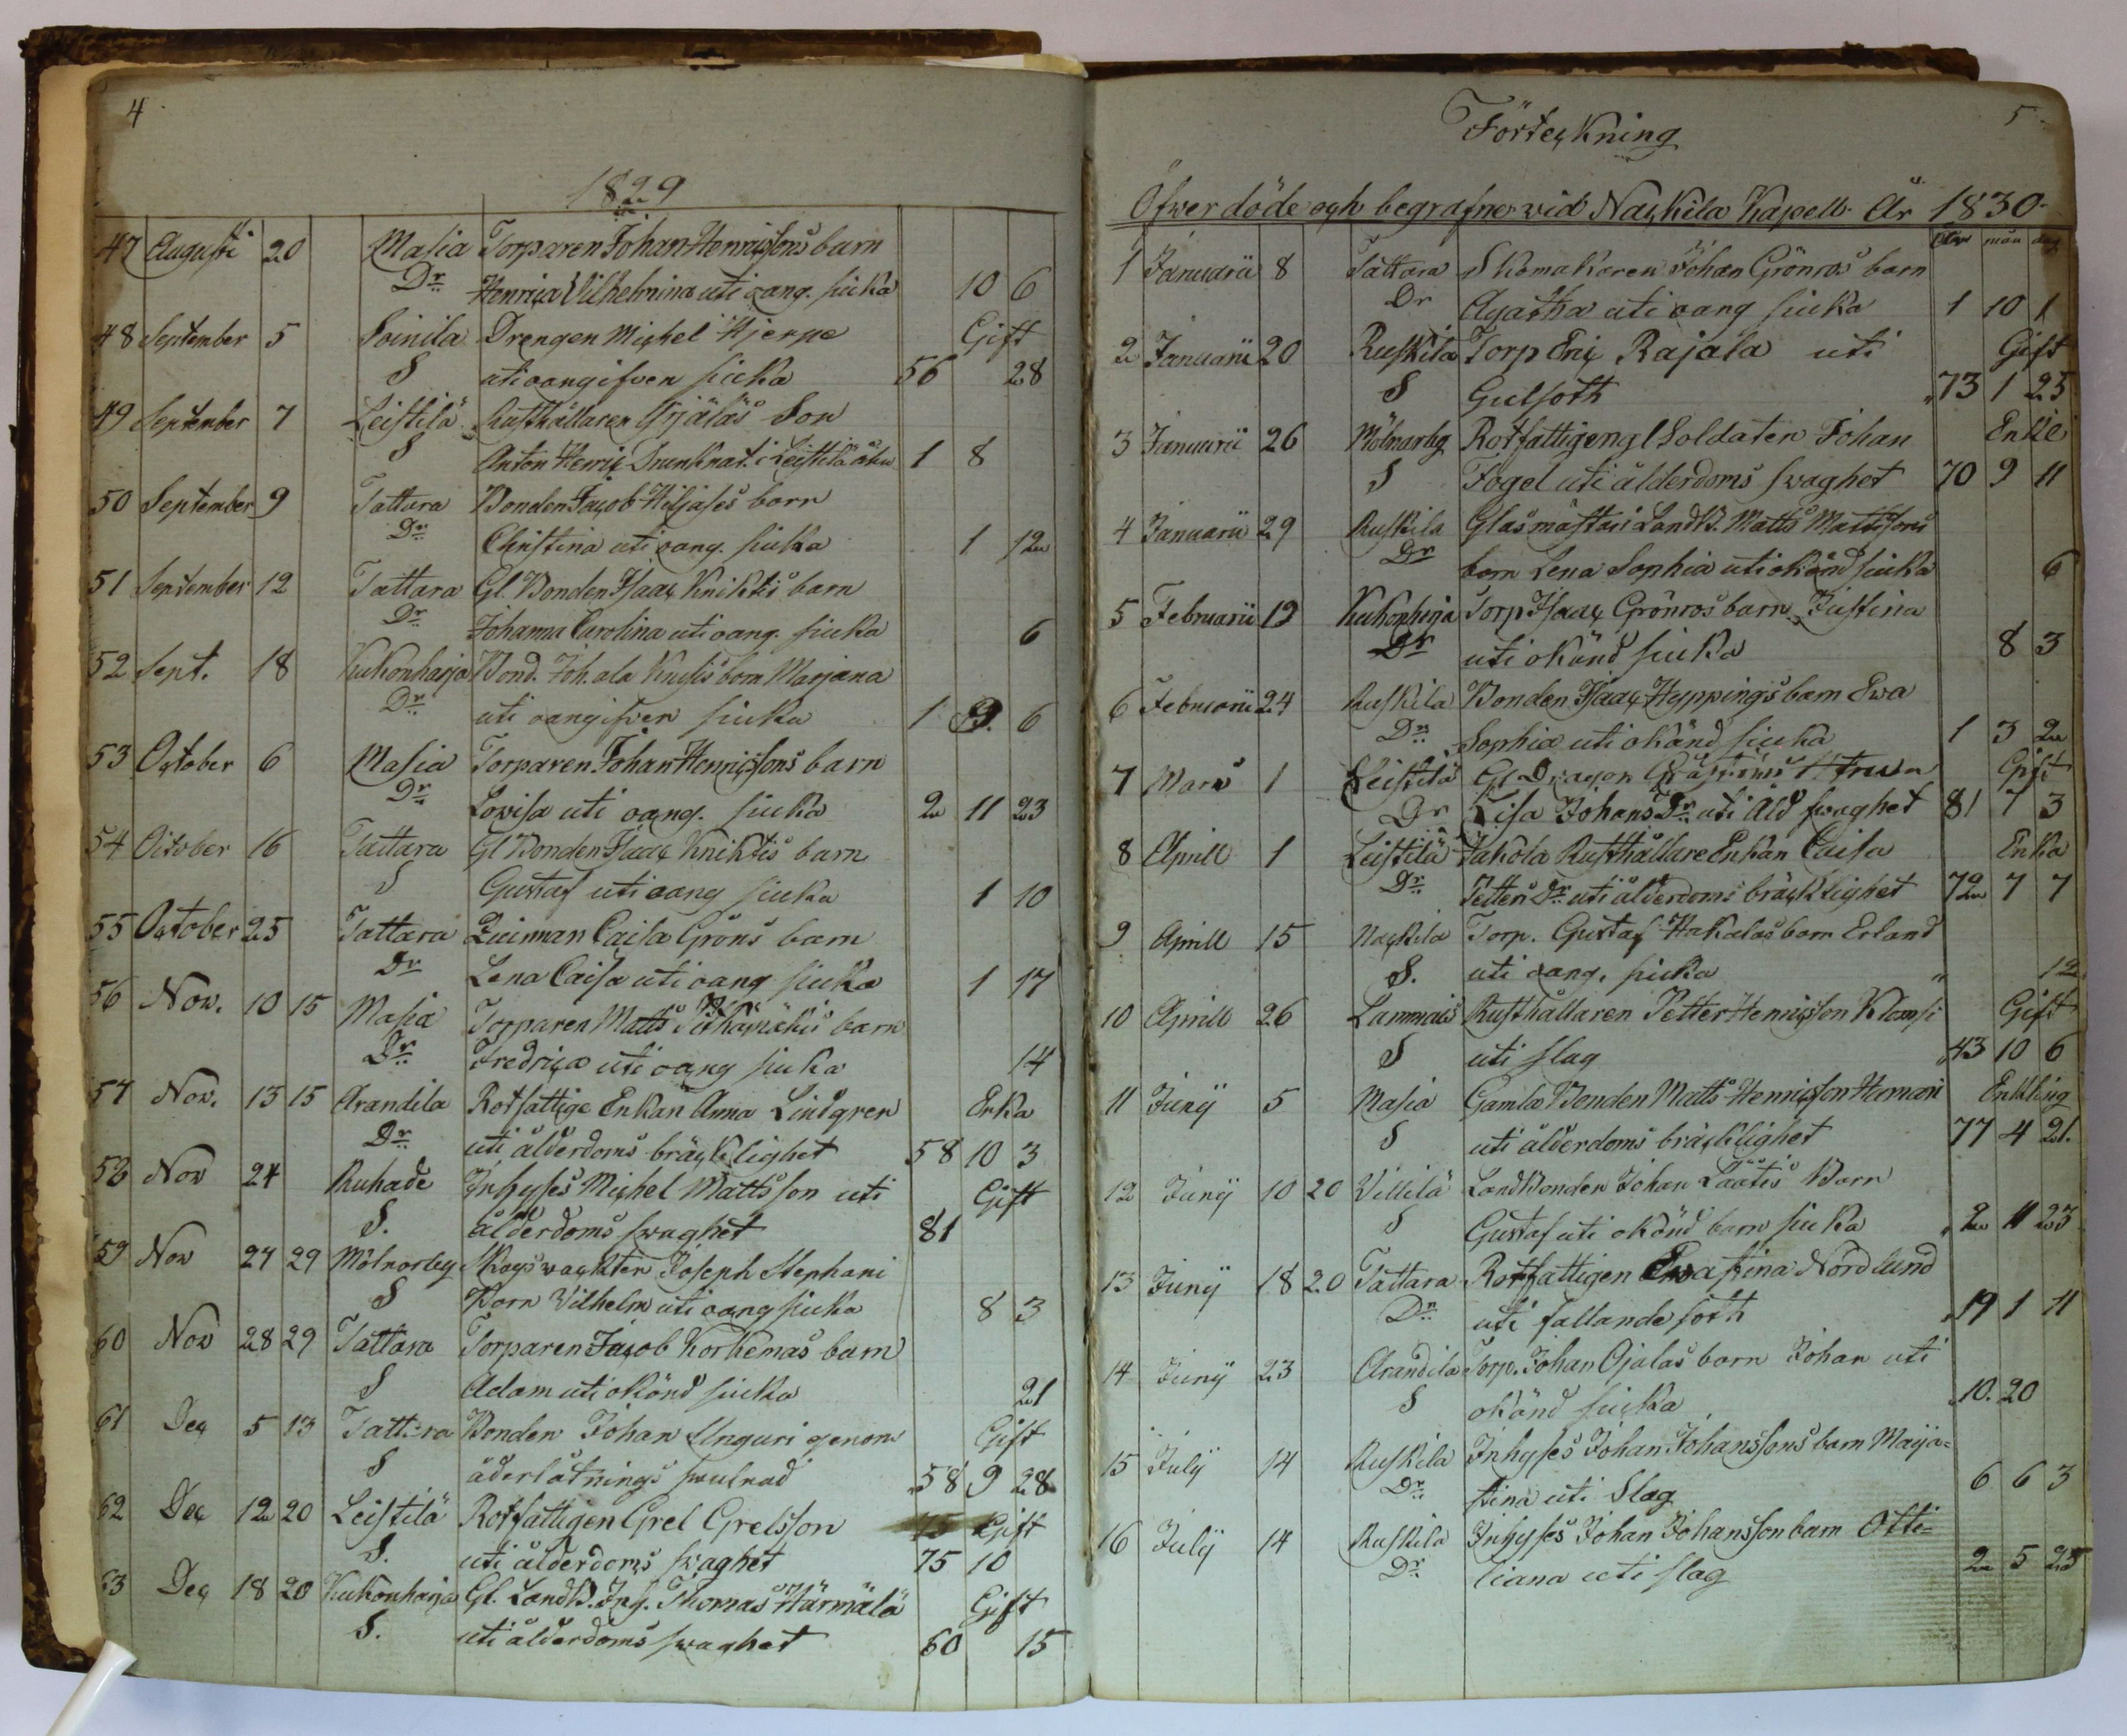 4
1829
47 Augusti 20 Masia Torparen Johan Henricssons barn
Dr Henrica Vilhelmina uti oang. siuka 10 6
48 September 5 Soinila Drengen Michel Hjerpe Gift
S uti oangifven siuka 56 28
49 September 7 Leistilä Rusthållaren Yrjäläs Son
S Anton Henric Drunknat i Leistilä åhn 1 8
50 September 9 Tattara Bonden Jacob Hiljases barn
Dr Christina uti oang. siuka 1 12
51 September 12 Tattara Gl Bonden Isaac Kniktis barn
Dr Johanna Carolina uti oang. siuka 6
52 Sept. 18 Kukonharja Bond. Joh. ala barn Marjana
Dr uti oangifven siuka 1 9 6
53 October 6 Masia Torparen Johan Henricssons barn
Dr Lovisa uti oang. siuka 2 11 23
54 October 16 Tattara Gl Bonden Isaac Kniktis barn
S Gustaf uti oang siuka 1 10
55 October 25 Tattara Qvinnan Caisa Gröns barn
Dr Lena Caisa uti oang siuka 1 17
56 Nov. 10 15 Masia Torparen Matts barn
Dr Fredrica uti oang siuka 14
57 Nov. 13 15 Arandila Rotfattige Enkan Anna Lindgren Enka
Dr uti ålderdoms bräcklighet 58 10 3
58 Nov 24 Ruhade Inhyses Michel Mattsson uti Gift
S. ålderdoms swaghet 81
59 Nov 27 29 Mölnorby Skogsvackten Joseph Stephani
S Barn Vilhelm uti oang siuka 8 3
60 Nov 28 29 Tattara Torparen Jacob Korkemas barn
S Adam uti okänd siuka 21
61 Dec 5 13 Tattara Bonden Johan Unguri genom Gift
S åderlåtnings swulnad 58 9 28
62 Dec 12 20 Leistilä Rotfattigen Grel Grelsson 75 Gift
S. uti ålderdoms swaghet 75 10
63 Dec 18 20 Kukonharja Gl. LandB. Inh. Thomas Härmälä Gift
S. uti ålderdoms swaghet 60 15
5
Förteckning
Öfwer döde och begrafne wid Nackila Kapell År 1830
Olar mån dag
1 Januarii 8 Tattara Skomakaren Johan Grönros barn
Dr Agatha uti oang siuka 1 10 1
2 Januarii 20 Ruskila Torp Eric Rajala uti Gift
S Gulsoth 73 1 25
3 Januarii 26 Mölnorby Rotfattigen gl Soldaten Johan Enkli
S Fogel uti ålderdoms swaghet 70 9 11
4 Januarii 29 Ruskila Glasmästari LandB. Matts Mattssons
Dr barn Lena Sophia uti okänd siuka 6
5 Februarii 19 Kukonharja Torp Isaac Grönros barn Justina
Dr uti okänd siuka 8 3
6 Februarii 24 Ruskila Bonden Isaac Hyppings barn Ewa
Dr Sophia uti okänd siuka 1 3 2
7 Mars 1 Leistilä Gl Dragon Hustru Gift
Dr Lisa Johans Dr uti Åld swaghet 81 7 3
8 Aprill 1 Leistilä Jakola Rusthållare Enkan Caisa Enka
Dr Petters Dr uti ålderdoms bräcklighet 72 7 7
9 Aprill 15 Nackila Torp. Gustaf Hakalas barn Erland
S. uti oang. siuka 12
10 Aprill 26 Lammais Rusthållaren Petter Henricsson Klamsi Gift
S uti slag 43 10 6
11 Junÿ 5 Masia Gamla Bonden Matts Henricsson Enkling
S uti ålderdoms bräcklighet 77 4 21.
12 Junÿ 10 20 Villilä LandBonden Johan Läätis Barn
S Gustaf uti okänd barn siuka 2 11 23
13 Junÿ 18 20 Tattara Rotfattigen Ewastina Nordlund
Dr uti fallande soth 19 1 11
14 Junÿ 23 Arandila Torp. Johan Ojalas barn Johan uti
S okänd siucka 10. 20
15 Julÿ 14 Ruskila Inhyses Johan Johanssons barn Maija-
Dr stina uti Slag 6 6 3
16 Julÿ 14 Ruskila Inhyses Johan Johansson barn Otti-
Dr liana uti slag 2 5 25